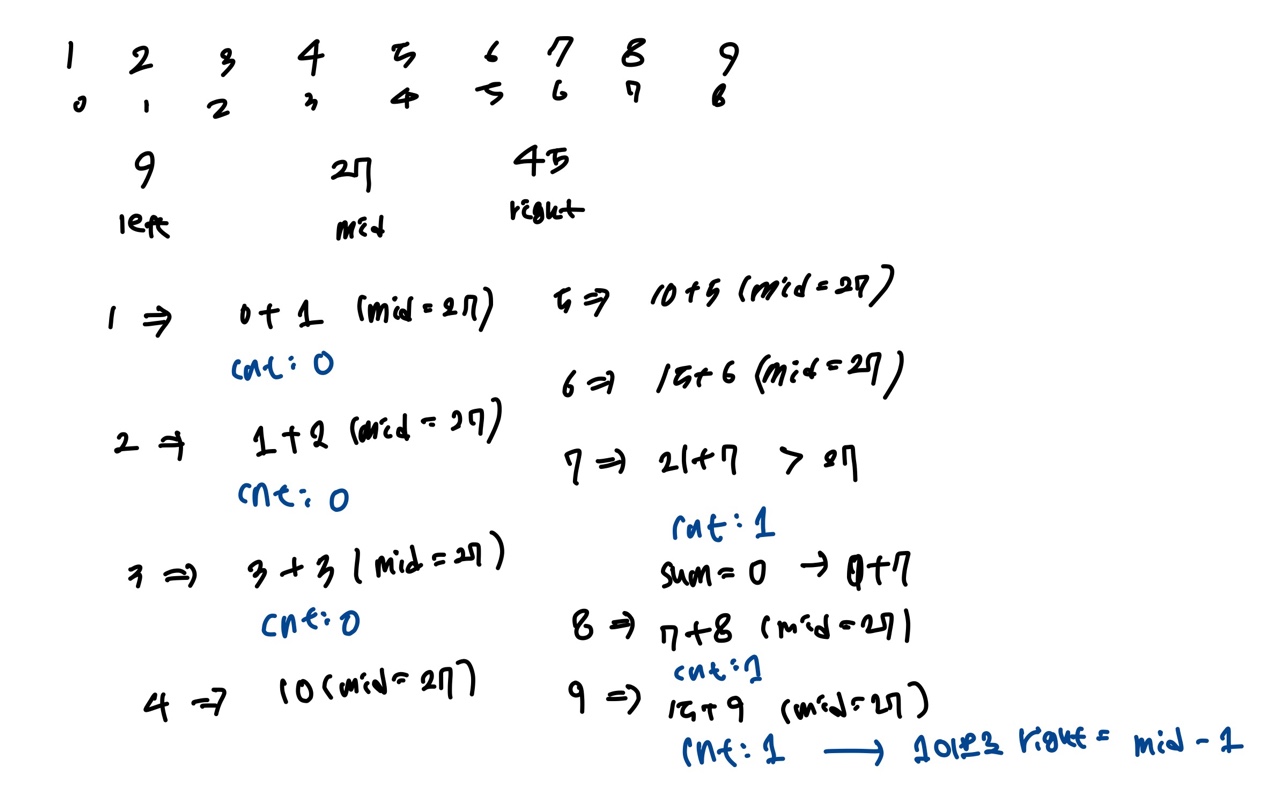 1 2 3 4 5 6 7 8 9
0 1 2 3 4 5 6 7 8
9 27 45
left mid right
1 ⇒ 0+1 (mid=27)
cnt: 0
2 ⇒ 1+2 (mid=27)
cnt: 0
3 ⇒ 3+3 (mid=27)
cnt: 0
4 ⇒ 10 (mid=27)
5 ⇒ 10+5 (mid=27)
6 ⇒ 15+6 (mid=27)
7 ⇒ 21+7 > 27
cnt: 1
sum=0 → 0+7
8 ⇒ 7+8 (mid=27)
cnt: 1
9 ⇒ 15+9 (mid=27)
cnt: 1 → 1이므로 right = mid - 1